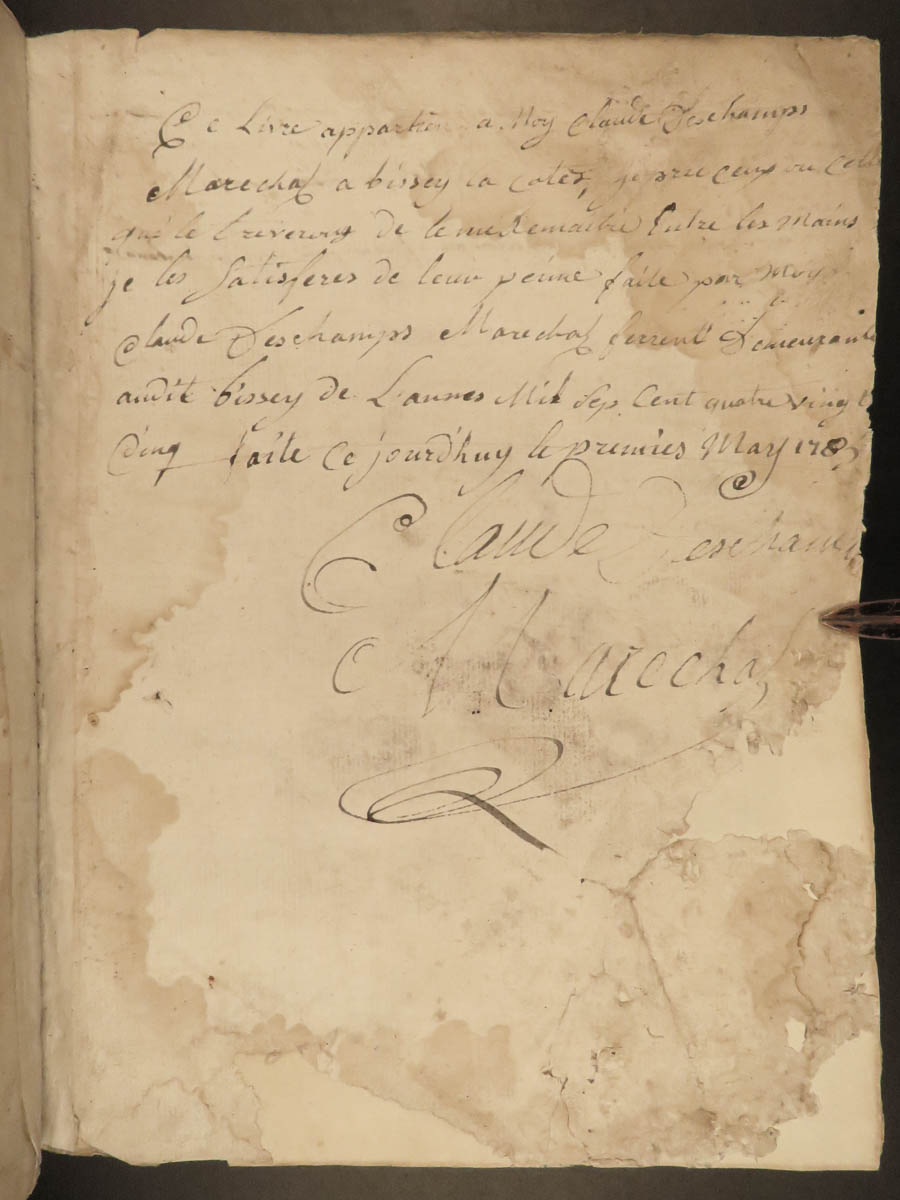 Ce Livre appartien a Moy Claude Deschamps
Marechal a bissey la Cotes, je prie ceux ou celle
qui le de le me Remaitre Entre les Mains
je les Satisferes de leur peinne faite par Moy
Claude Deschamps Marechal ferrent Demeurante
audit bissey de L'annes Mil Sep Cent quatre vingt
Cinq faite Ce jourd'huy le premies May 1785
Claude Deschamps
Marechal